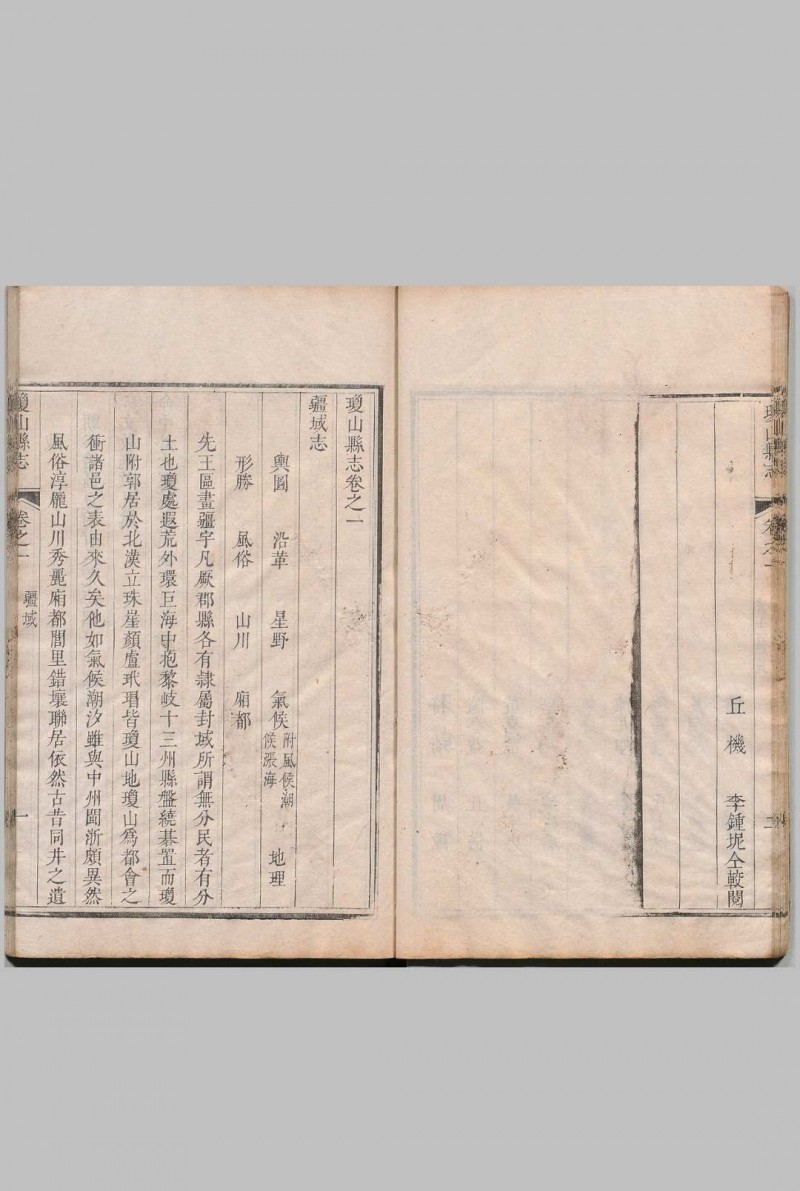 瓊山縣志 卷之一 二
丘機 李鍾坭仝較閱
瓊山縣志卷之一
疆域志
輿圖 沿革 星野 氣候 附風候潮候漲海 地理
形勝 風俗 山川 廂都
先王區畫疆宇凡厥郡縣各有隷屬封域所謂無分民者有分
土也瓊處遐荒外環巨海中抱黎岐十三州縣盤繞碁置而瓊
山附郭居於北漢立珠崖顏盧玳瑁皆瓊山地瓊山爲都會之
衝諸邑之表由來久矣他如氣候潮汐雖與中州閩浙頗異然
風俗淳龐山川秀麗廂都閭里錯壤聯居依然古昔同井之遺
瓊山縣志 卷之一 疆域 一